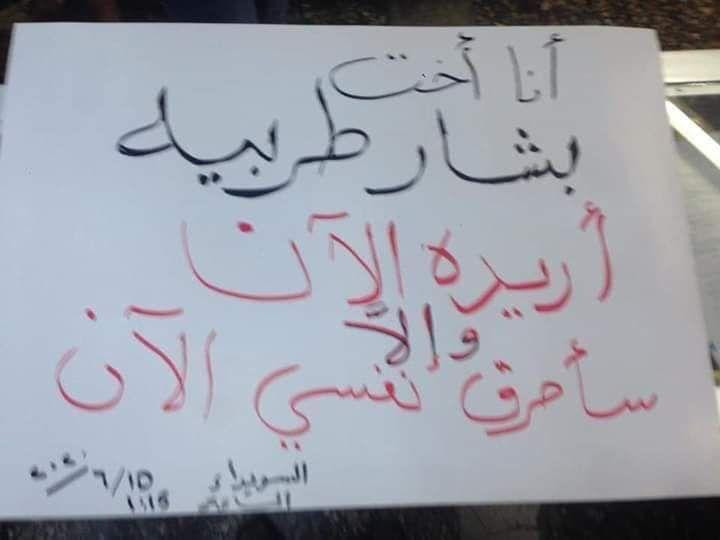 أنا أخت
بشار طربيه
أريده الآن
وإلا
سأحرق نفسي الآن
السويداء ٦/١٥ ٢٠٢٠
الساعة ١:١٥